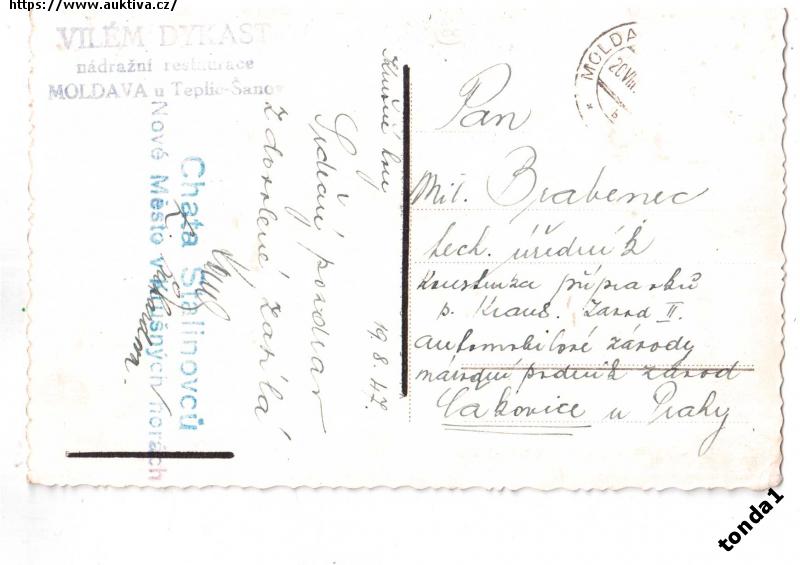 https://www.auktiva.cz/
VILÉM DYKAST
nádražní restaurace
MOLDAVA u Teplic-Šanov
Chata Stalinovců
Nové Město v Krušných horách
Krušné hory 19.8.47.
Srdečný pozdrav
z dovolené zasílá
MOLDA
20.VIII.
b
Pan
Mil. Brabenec
tech. úředník
přípravků
p. Kraus. Zavod II.
automobilové závody
národní podnik závod
Čakovice u Prahy
tonda1